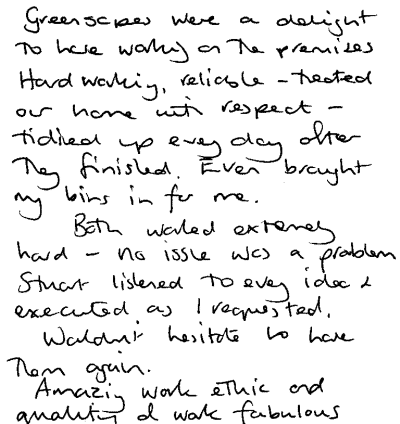 Greenscapes were a delight
to have working on the premises
Hard working, reliable - treated
our home with respect -
tidied up every day after
they finished. Even brought
my bins in for me.
Both worked extremely
hard - no issue was a problem
Stuart listened to every idea &
executed as I requested.
Wouldn't hesitate to have
them again.
Amazing work ethic and
quality of work fabulous